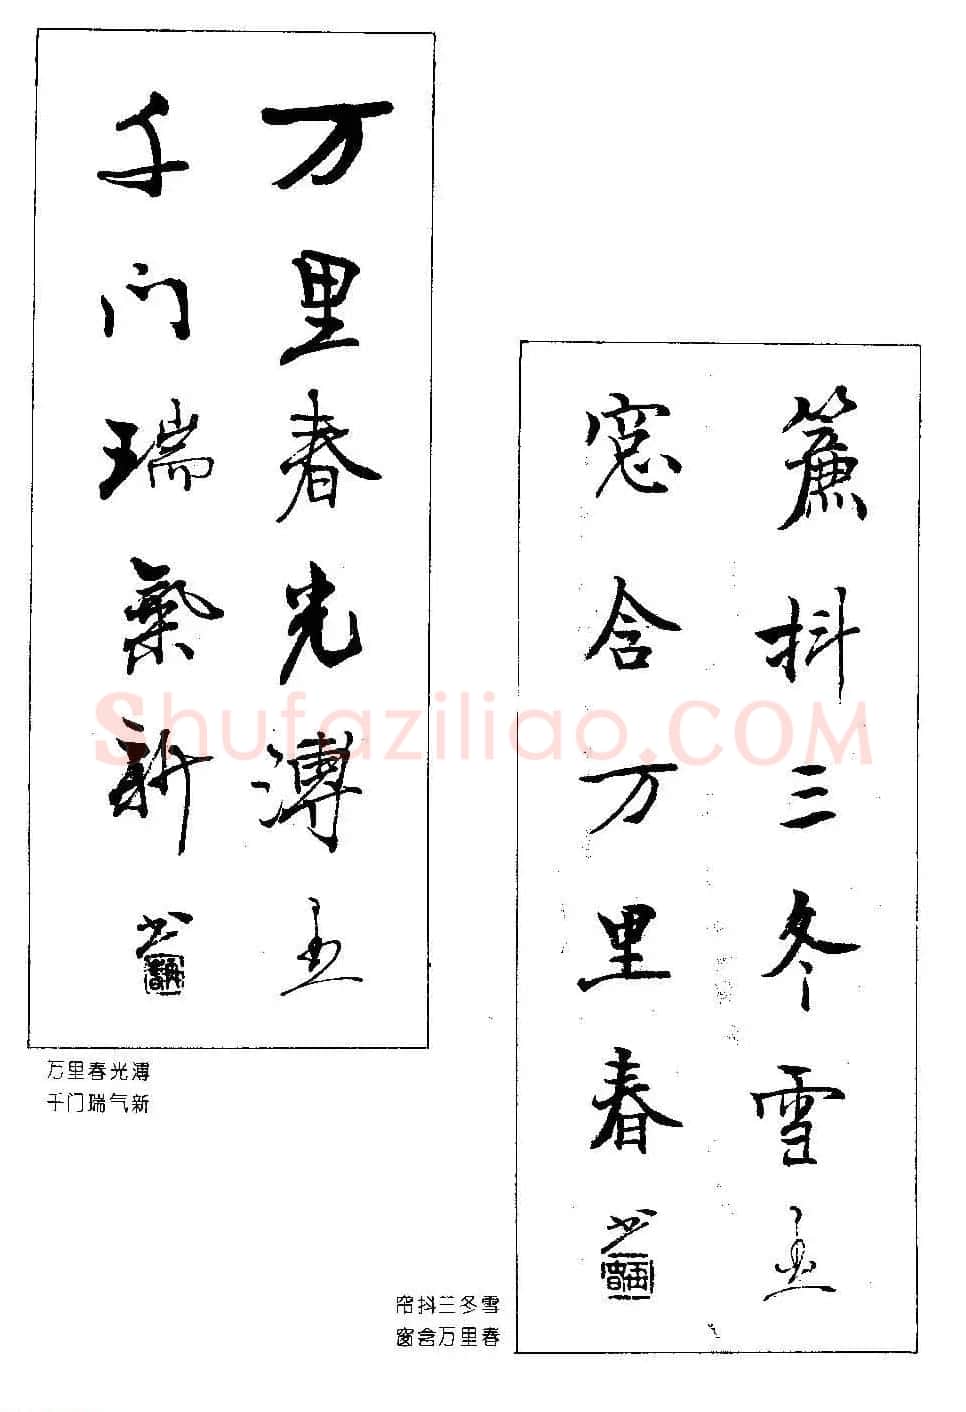 万里春光溥
千门瑞氣新
书
万里春光溥
千门瑞气新
簾抖三冬雪
窓含万里春
书
帘抖三冬雪
窗含万里春
Shufaziliao.COM